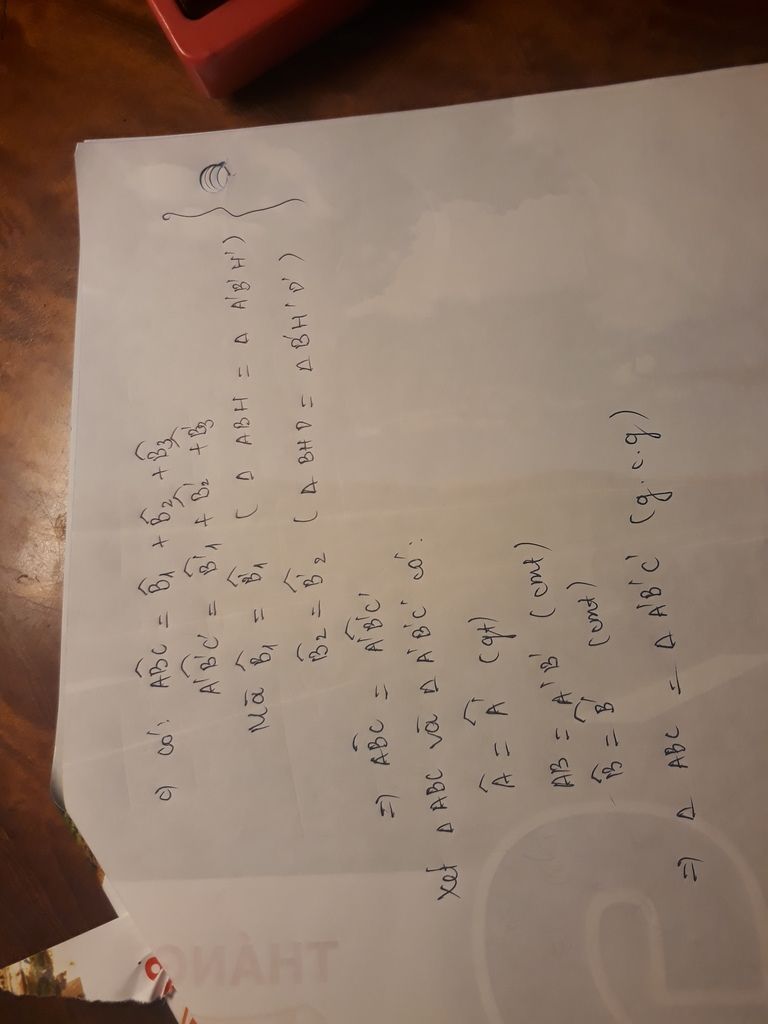 c) có: ABĈ = B̂1 + B̂2 + B̂3
A'B̂'C' = B̂'1 + B̂'2 + B̂'3
Mà B̂1 = B̂'1 ( Δ ABH = Δ A'B'H')
B̂2 = B̂'2 ( Δ BHD = Δ B'H'D' )
=) AB̂C = A'B̂'C'
Xét Δ ABC và Δ A'B'C' có:
Â = Â' (gt)
AB = A'B' (cmt)
B̂ = B̂' (cmt)
=) Δ ABC = Δ A'B'C' (g.c.g)
THÁNG